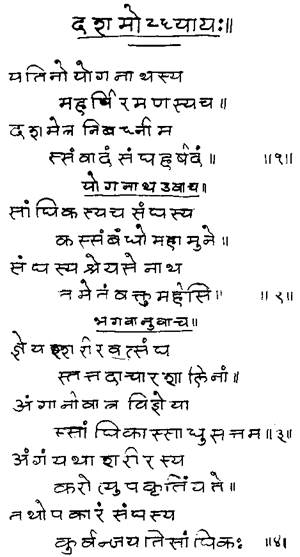 दशमोऽध्यायः॥
यतिनो योगनाथस्य
महर्षिरमणस्यच॥
दशमेत्र निबध्नीम
स्संवादं संघहर्षदं॥ ॥१॥
योगनाथ उवाच॥
सांघिकस्यच संघस्य
कस्संबंधो महामुने॥
संघस्य श्रेयसे नाथ
तमेतं वक्तुमर्हसि॥ ॥२॥
भगवानुवाच॥
ज्ञेयश्शरीरवत्संघ
स्तत्तदाचारशालिनां॥
अंगानीवात्र विज्ञेया
स्सांघिकास्साधुसत्तम॥३॥
अंगं यथा शरीरस्य
करोत्युपकृतिं यते॥
तथोपकारं संघस्य
कुर्वन् जयति सांघिकः ॥४॥